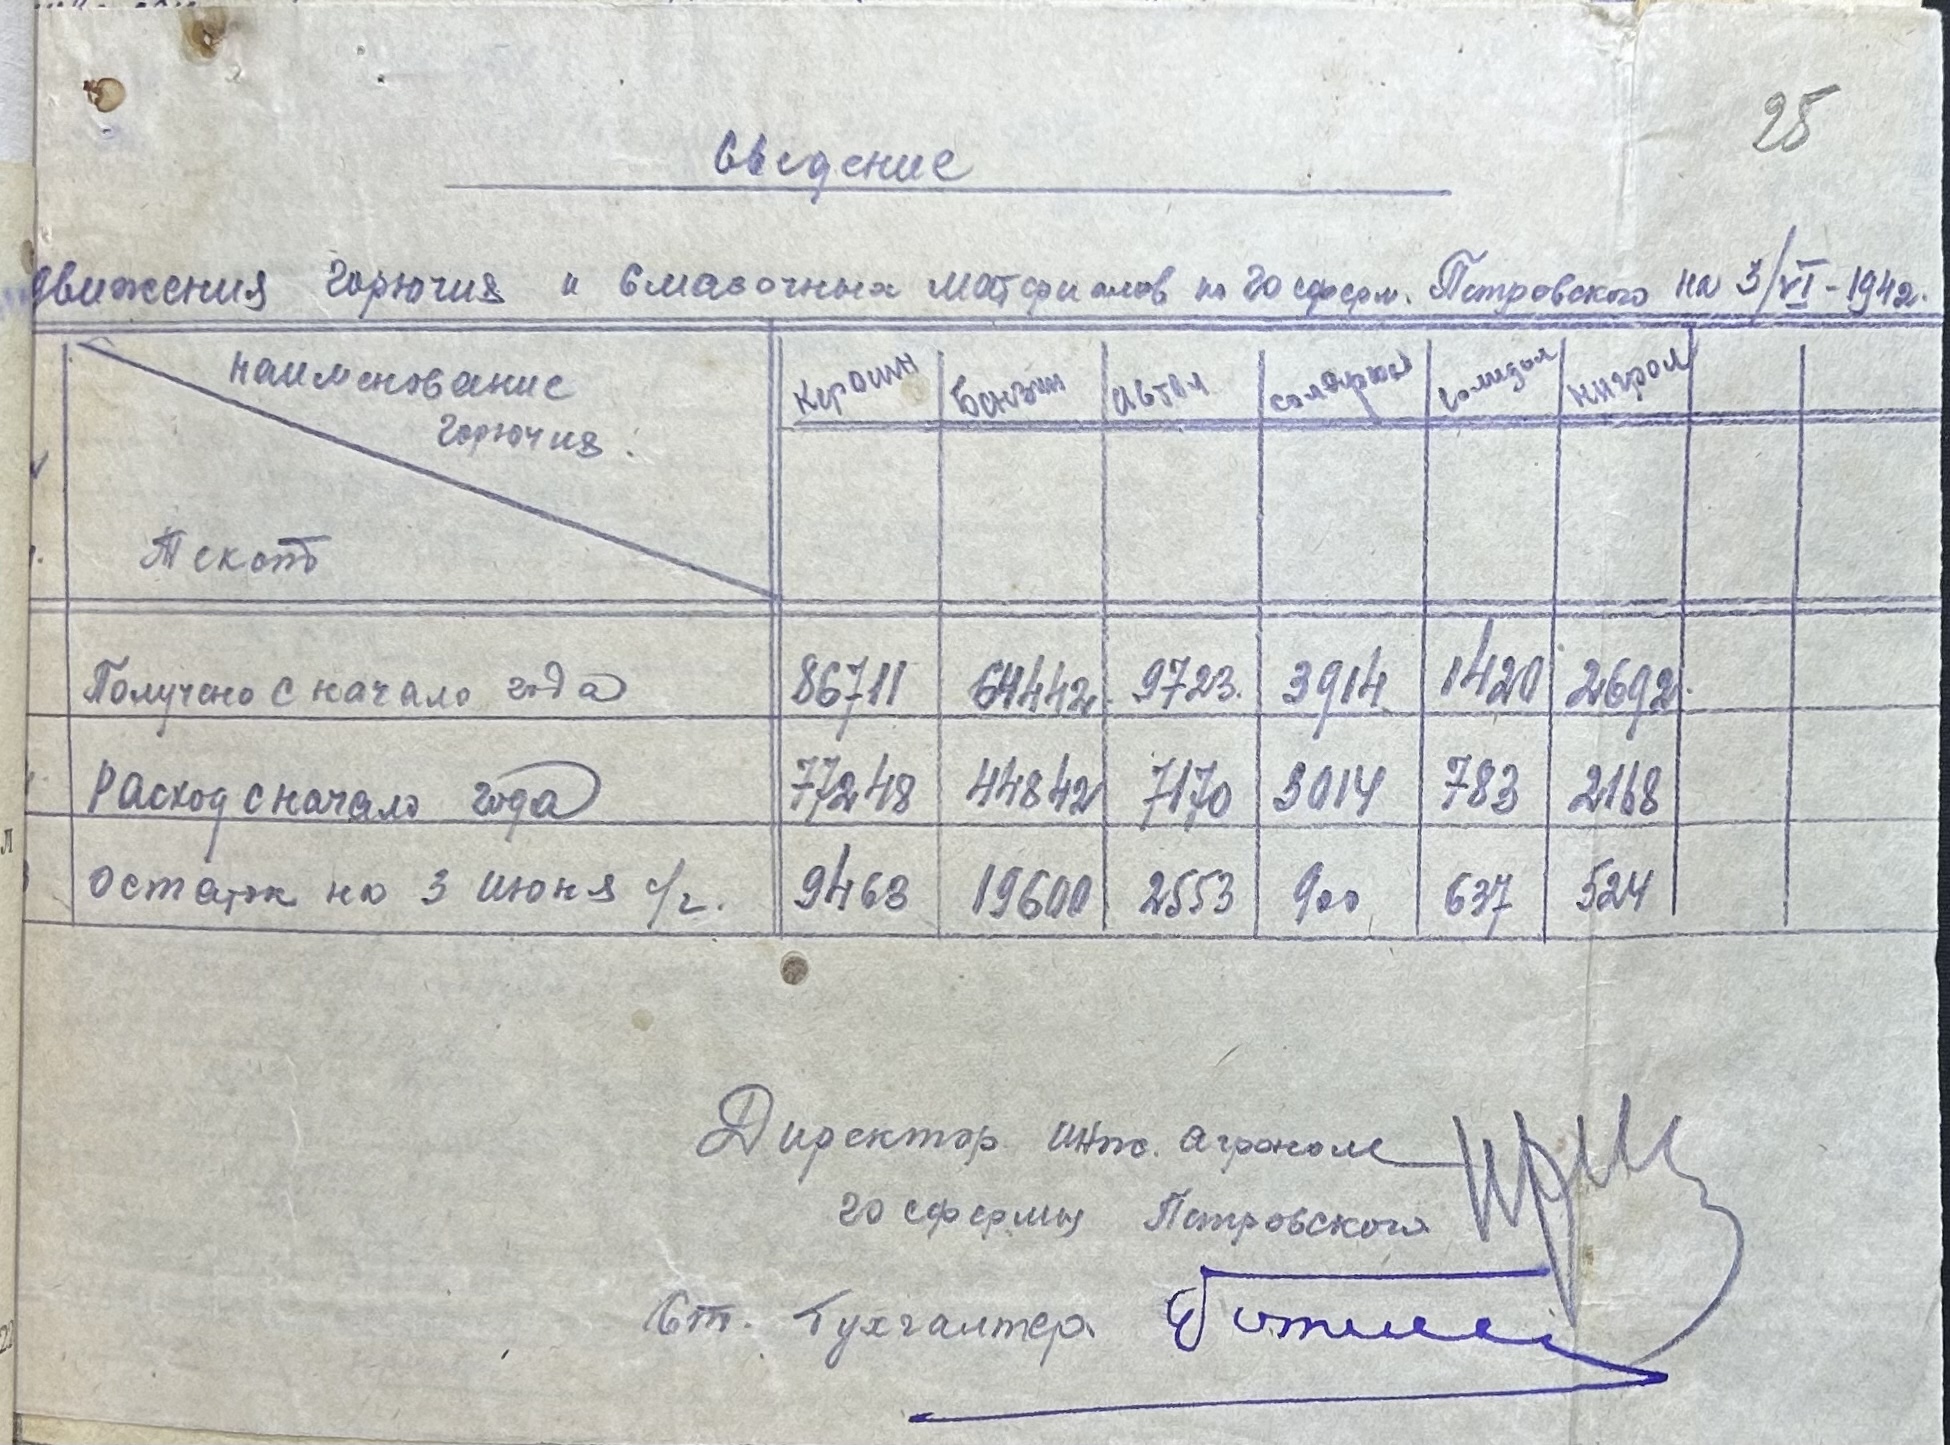 25
Сведение
движения горючия и смазочных материалов по госферм. Петровского на 3/VI-1942.
наименование
горючия.
Текст
Керосин Бензин автол солидол нигрол
Получено с начало года 86711 64442 9723 3914 1420 2692
Расход с начало года 77248 44842 7170 3014 783 2168
Остаток на 3 июня с/г. 9463 19600 2553 900 637 524
Директор инж. агроном
госфермы Петровского
Ст. Бухгалтер